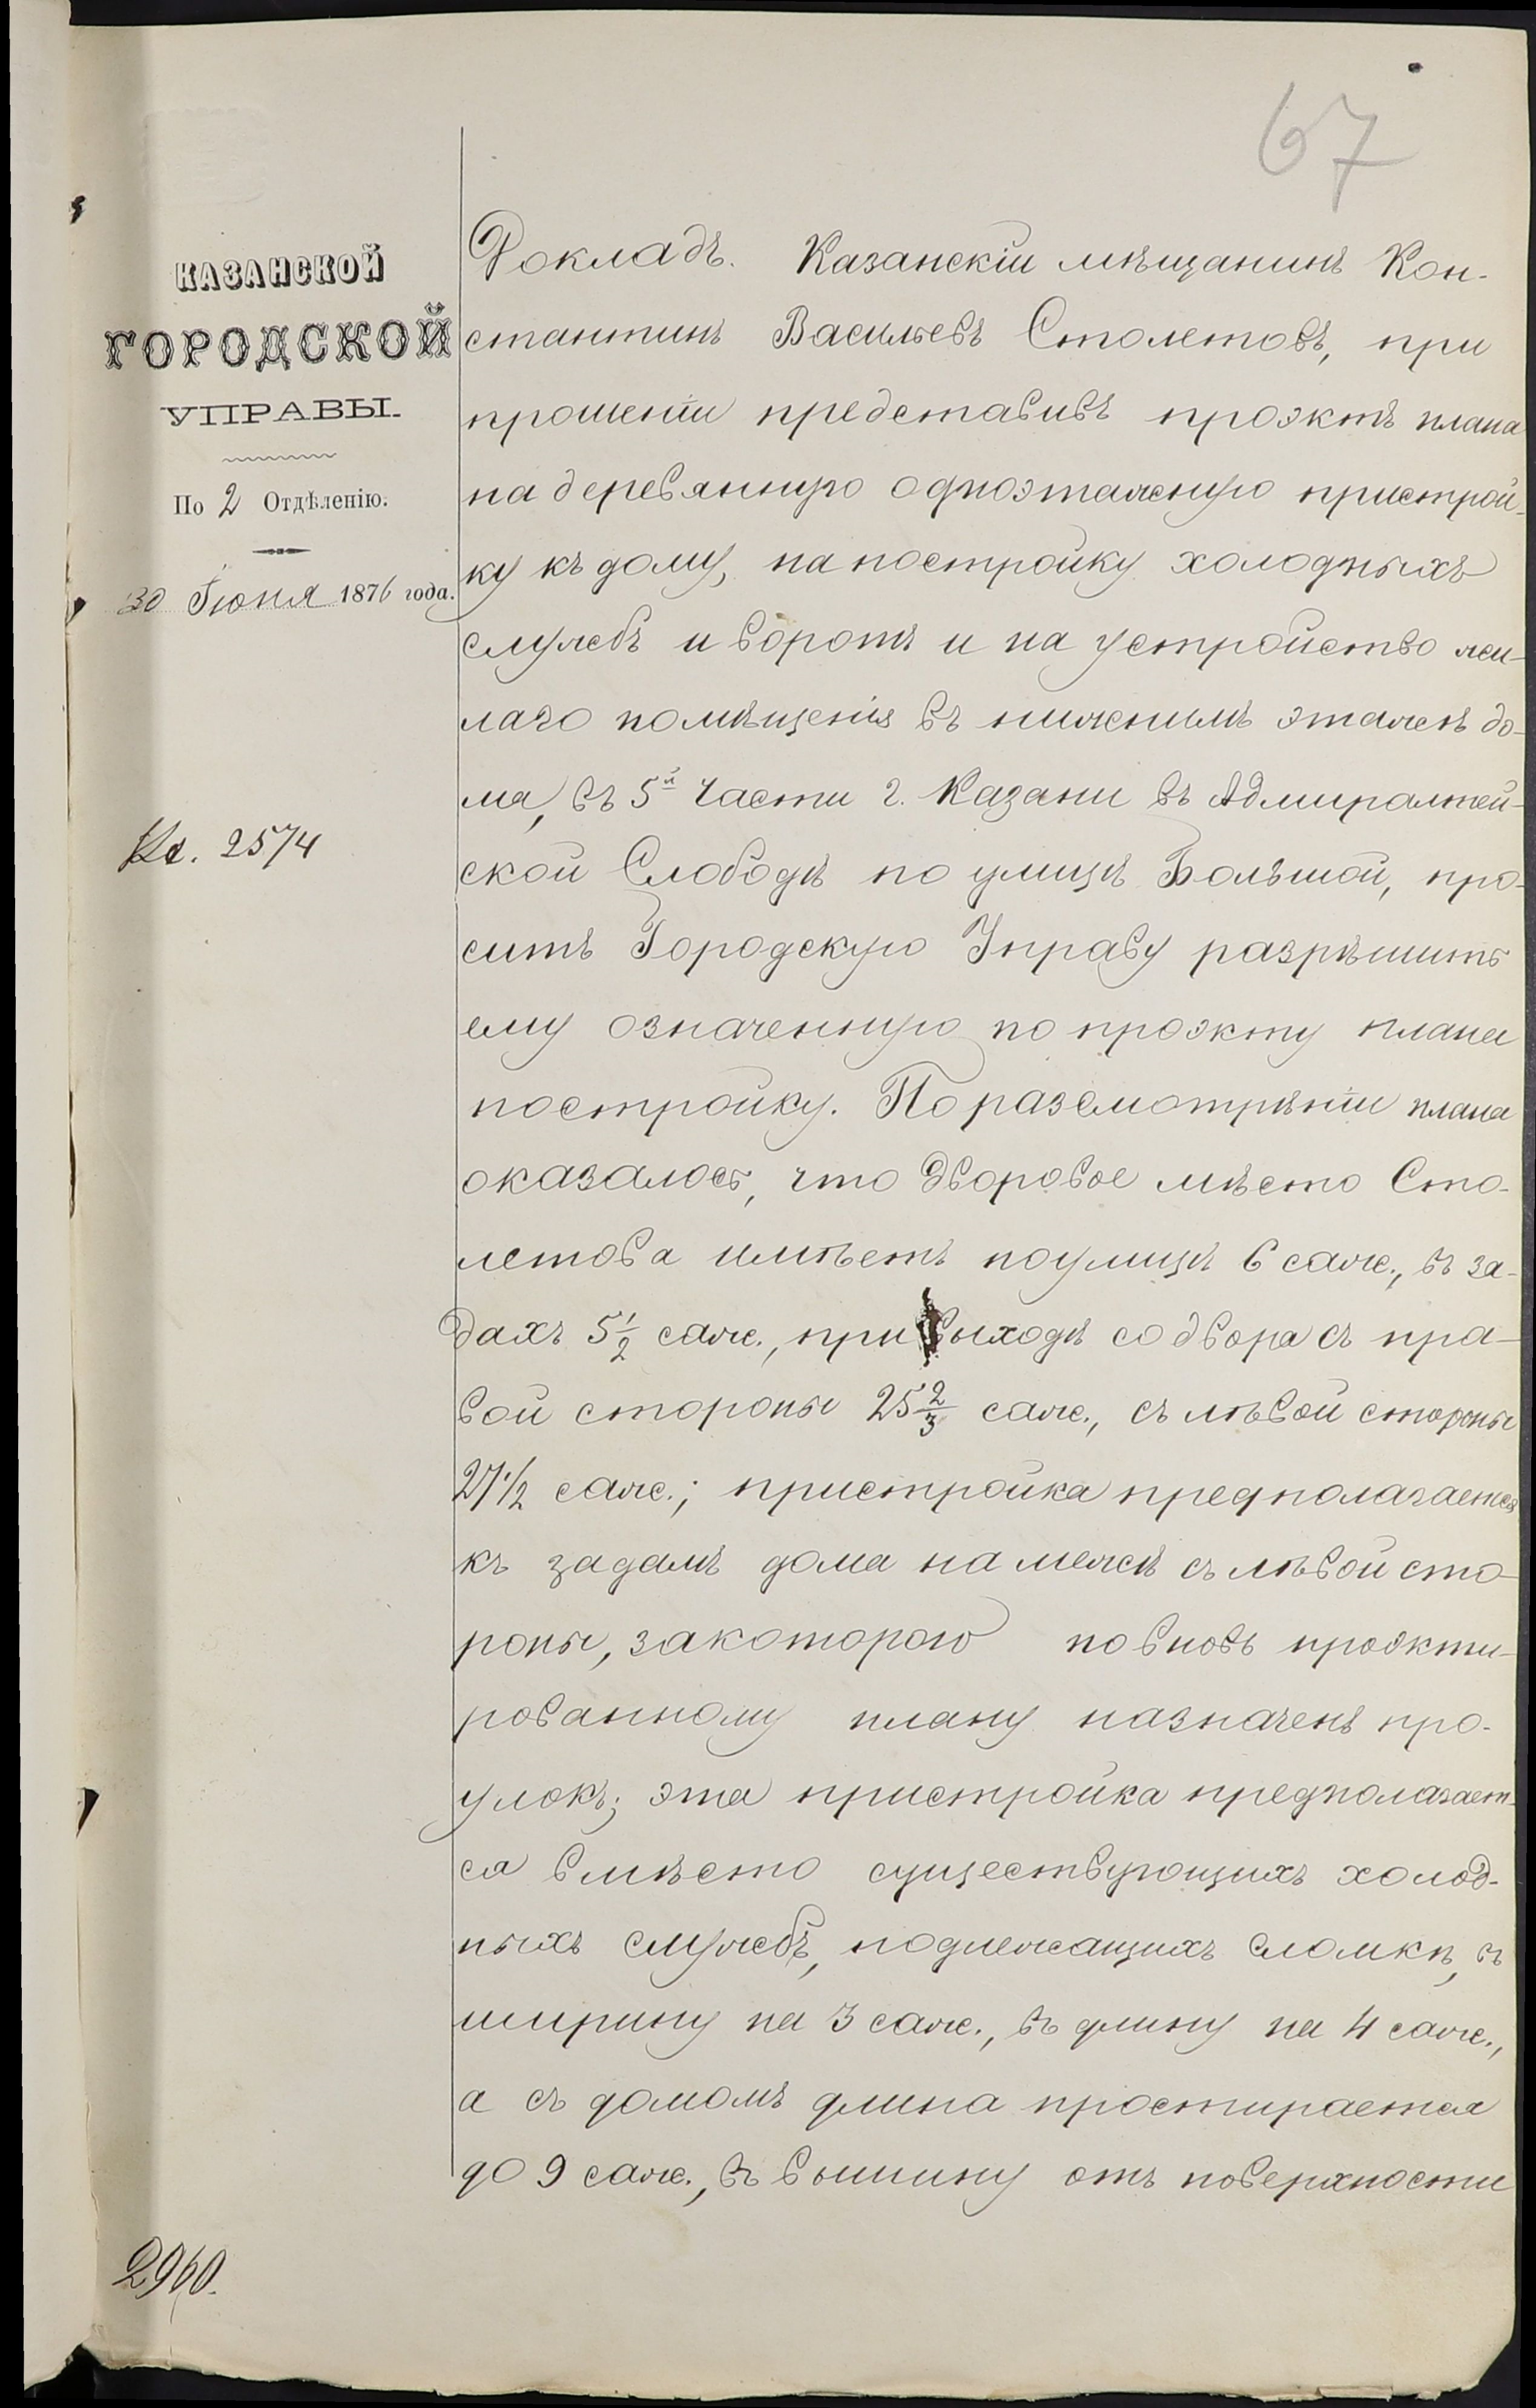 67
КАЗАНСКОЙ
ГОРОДСКОЙ
УПРАВЫ.
По 2 Отдѣленію.
30 Іюня 1876 года.
Вх. 2574
Докладъ. Казанскій мѣщанинъ Кон-
стантинъ Васильевъ Столетовъ, при
прошеніи представивъ проэктъ плана
на деревянную одноэтажную пристрой-
ку къ дому, на постройку холодныхъ
службъ и воротъ и на устройство жи-
лаго помѣщенія въ нижнимъ этажѣ до-
ма, въ 5й части г. Казани въ Адмиралтей-
ской Слободѣ по улицѣ Большой, про-
ситъ Городскую Управу разрѣшить
ему означенную по проэкту плана
постройку. По разсмотрѣніи плана
оказалось, что дворовое мѣсто Сто-
летова имѣетъ по улицѣ 6 саж., въ за-
дахъ 5 1/2 саж., при выходѣ со двора съ пра-
вой стороны 25 2/3 саж., съ лѣвой стороны
27 1/2 саж.; пристройка предполагается
къ задамъ дома на межѣ съ лѣвой сто-
роны, за которою по вновь проэкти-
рованному плану назначенъ про-
улокъ; эта пристройка предполагает-
ся вмѣсто существующихъ холод-
ныхъ службъ, подлежащихъ сломкѣ, въ
ширину на 3 саж., въ длину на 4 саж.,
а съ домомъ длина простирается
до 9 саж., въ вышину отъ поверхности
2960.